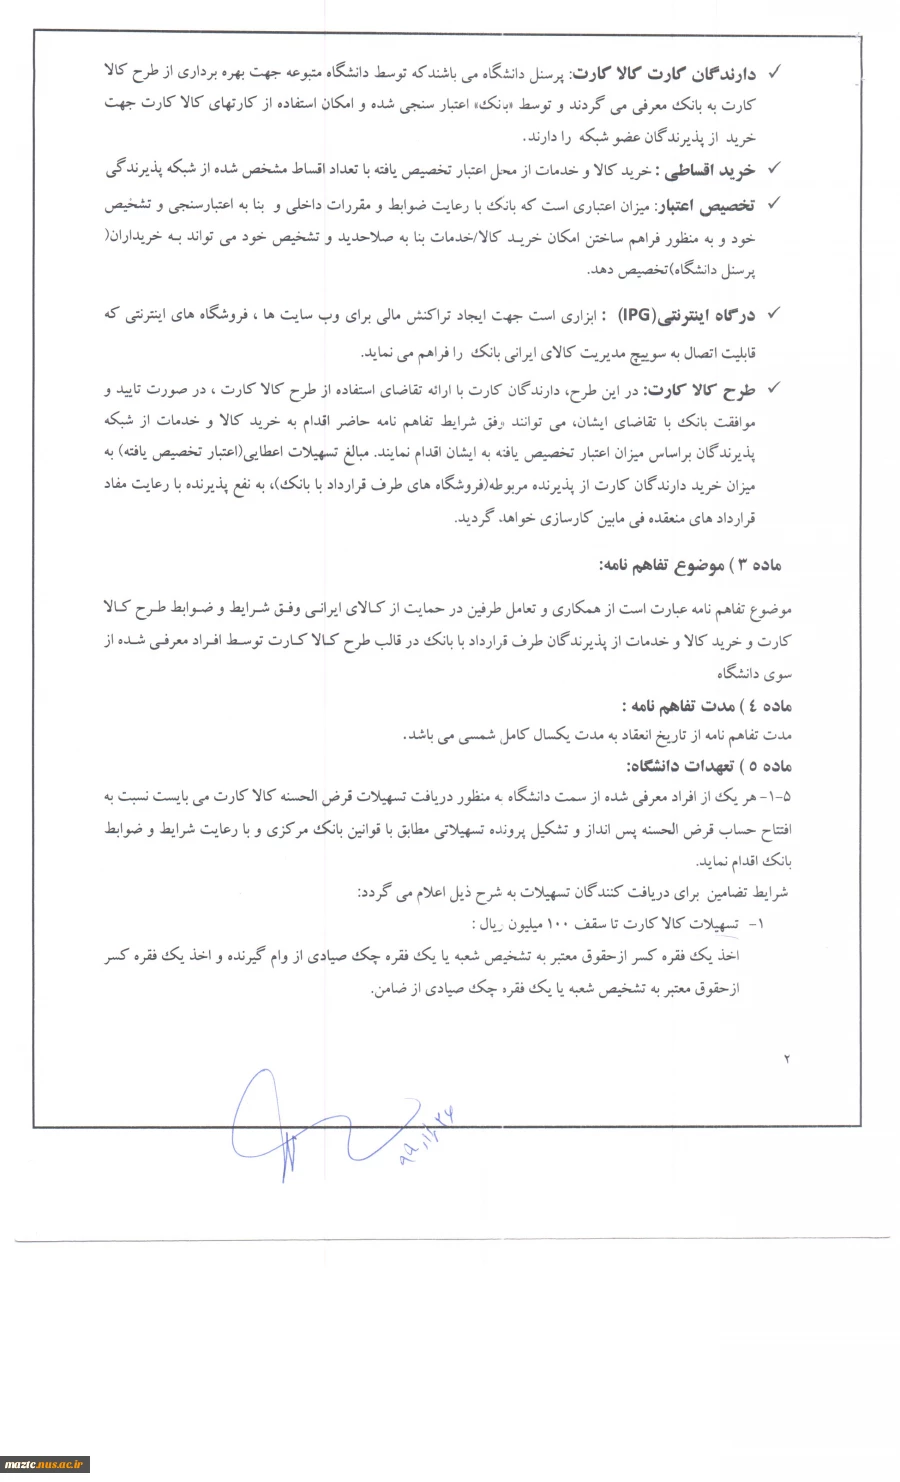 ✓ دارندگان کارت کالا کارت: پرسنل دانشگاه می باشندکه توسط دانشگاه متبوعه جهت بهره برداری از طرح کالا
کارت به بانک معرفی می گردند و توسط «بانک» اعتبار سنجی شده و امکان استفاده از کارتهای کالا کارت جهت
خرید از پذیرندگان عضو شبکه را دارند.
✓ خرید اقساطی : خرید کالا و خدمات از محل اعتبار تخصیص یافته با تعداد اقساط مشخص شده از شبکه پذیرندگی
✓ تخصیص اعتبار: میزان اعتباری است که بانک با رعایت ضوابط و مقررات داخلی و بنا به اعتبارسنجی و تشخیص
خود و به منظور فراهم ساختن امکان خرید کالا/خدمات بنا به صلاحدید و تشخیص خود می تواند به خریداران(
پرسنل دانشگاه)تخصیص دهد.
✓ درگاه اینترنتی(IPG) : ابزاری است جهت ایجاد تراکنش مالی برای وب سایت ها ، فروشگاه های اینترنتی که
قابلیت اتصال به سوییچ مدیریت کالای ایرانی بانک را فراهم می نماید.
✓ طرح کالا کارت: در این طرح، دارندگان کارت با ارائه تقاضای استفاده از طرح کالا کارت ، در صورت تایید و
موافقت بانک با تقاضای ایشان، می توانند وفق شرایط تفاهم نامه حاضر اقدام به خرید کالا و خدمات از شبکه
پذیرندگان براساس میزان اعتبار تخصیص یافته به ایشان اقدام نمایند. مبالغ تسهیلات اعطایی(اعتبار تخصیص یافته) به
میزان خرید دارندگان کارت از پذیرنده مربوطه(فروشگاه های طرف قرارداد با بانک)، به نفع پذیرنده با رعایت مفاد
قرارداد های منعقده فی مابین کارسازی خواهد گردید.
ماده ۳ ) موضوع تفاهم نامه:
موضوع تفاهم نامه عبارت است از همکاری و تعامل طرفین در حمایت از کالای ایرانی وفق شرایط و ضوابط طرح کالا
کارت و خرید کالا و خدمات از پذیرندگان طرف قرارداد با بانک در قالب طرح کالا کارت توسط افراد معرفی شده از
سوی دانشگاه
ماده ٤ ) مدت تفاهم نامه :
مدت تفاهم نامه از تاریخ انعقاد به مدت یکسال کامل شمسی می باشد.
ماده ٥ ) تعهدات دانشگاه:
۵-۱- هر یک از افراد معرفی شده از سمت دانشگاه به منظور دریافت تسهیلات قرض الحسنه کالا کارت می بایست نسبت به
افتتاح حساب قرض الحسنه پس انداز و تشکیل پرونده تسهیلاتی مطابق با قوانین بانک مرکزی و با رعایت شرایط و ضوابط
بانک اقدام نماید.
شرایط تضامین برای دریافت کنندگان تسهیلات به شرح ذیل اعلام می گردد:
۱- تسهیلات کالا کارت تا سقف ۱۰۰ میلیون ریال :
اخذ یک فقره کسر ازحقوق معتبر به تشخیص شعبه یا یک فقره چک صیادی از وام گیرنده و اخذ یک فقره کسر
ازحقوق معتبر به تشخیص شعبه یا یک فقره چک صیادی از ضامن.
۲
maztc.nus.ac.ir